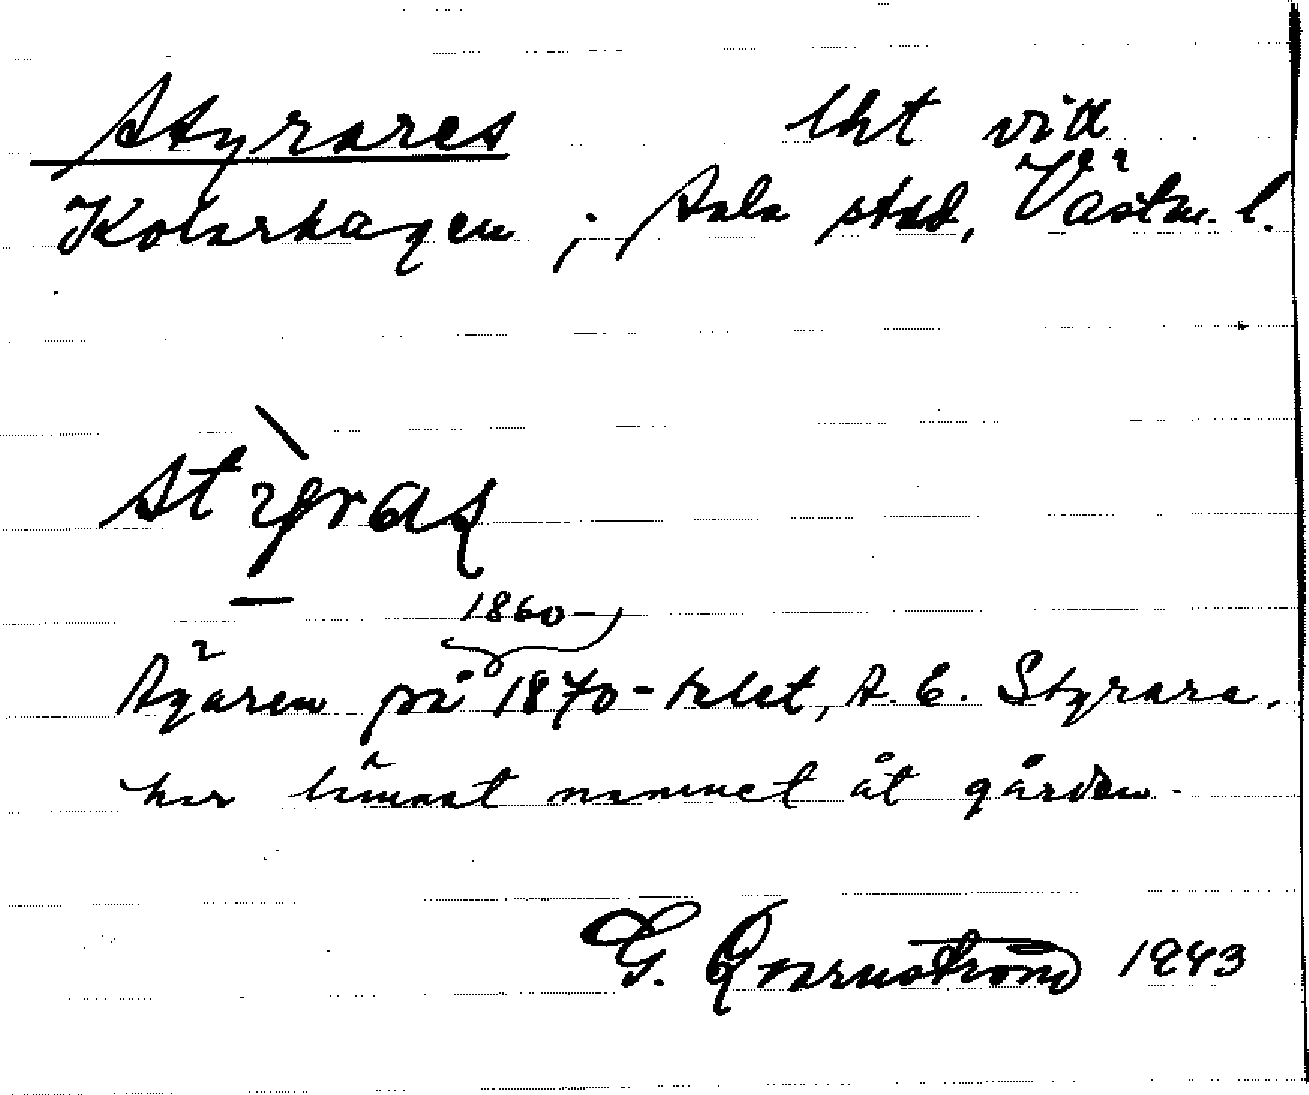 Styrares lht vid
Kolarhagen, i Sala stad, Västm. l.
styras
1860-
Ägaren på 1870-talet, A. E. Styrare,
har lämnat namnet åt gården.
G. Qvarnström 1943